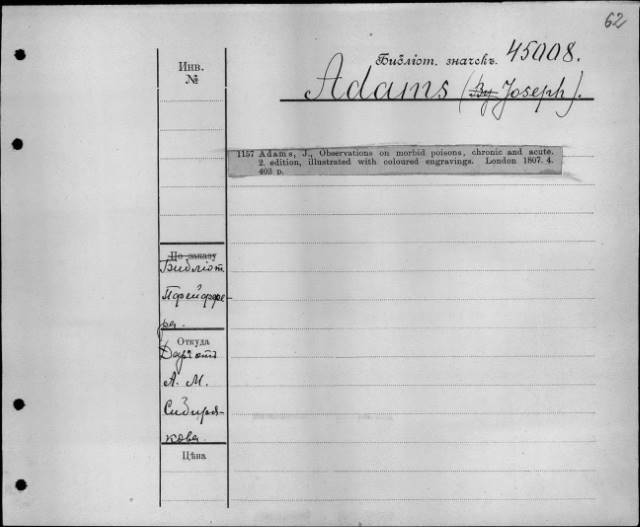 62
Библіот. значекъ. 45008.
Adams (By Joseph).
Инв.
№
1157 Adams, J., Observations on morbid poisons, chronic and acute.
2. edition, illustrated with coloured engravings. London 1807. 4.
403 p.
По заказу
Библіот.
Пфейффе-
ра.
Откуда
Даръ отъ
А. М.
Сибиря-
кова.
Цѣна